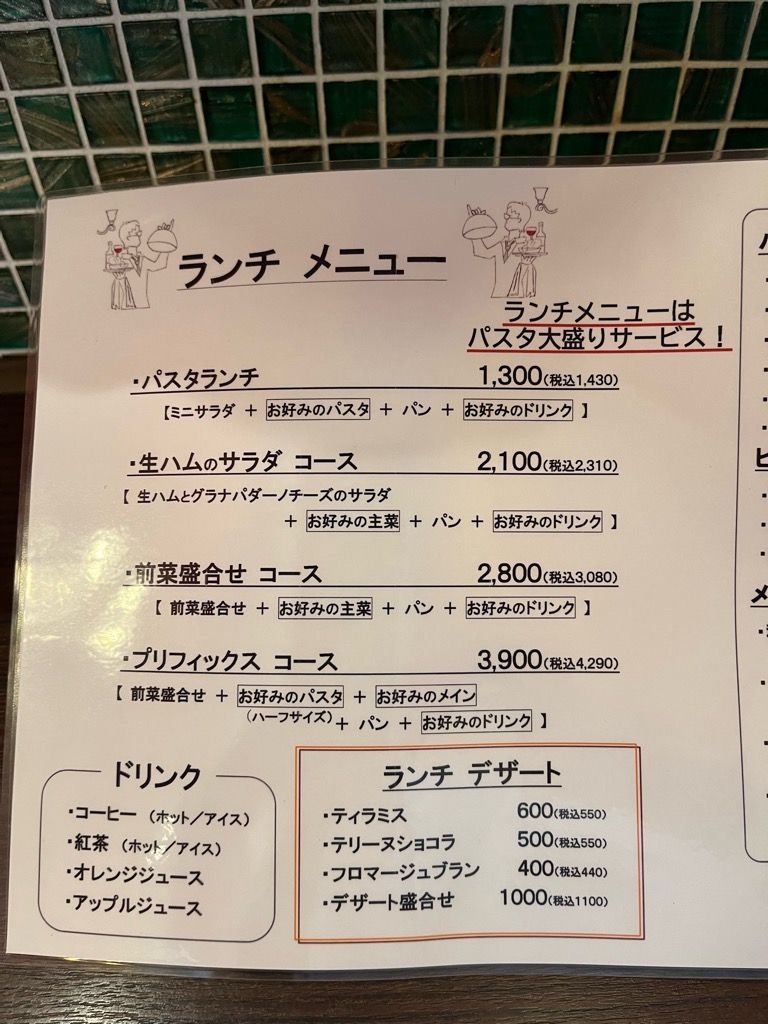 ランチ メニュー
ランチメニューは
パスタ大盛りサービス！
・パスタランチ 1,300(税込1,430)
【ミニサラダ ＋ お好みのパスタ ＋ パン ＋ お好みのドリンク 】
・生ハムのサラダ コース 2,100(税込2,310)
【 生ハムとグラナパダーノチーズのサラダ
＋ お好みの主菜 ＋ パン ＋ お好みのドリンク 】
・前菜盛合せ コース 2,800(税込3,080)
【 前菜盛合せ ＋ お好みの主菜 ＋ パン ＋ お好みのドリンク 】
・プリフィックス コース 3,900(税込4,290)
【 前菜盛合せ ＋ お好みのパスタ ＋ お好みのメイン
（ハーフサイズ）＋ パン ＋ お好みのドリンク 】
ドリンク
・コーヒー （ホット／アイス）
・紅茶 （ホット／アイス）
・オレンジジュース
・アップルジュース
ランチ デザート
・ティラミス 600(税込550)
・テリーヌショコラ 500(税込550)
・フロマージュブラン 400(税込440)
・デザート盛合せ 1000(税込1100)